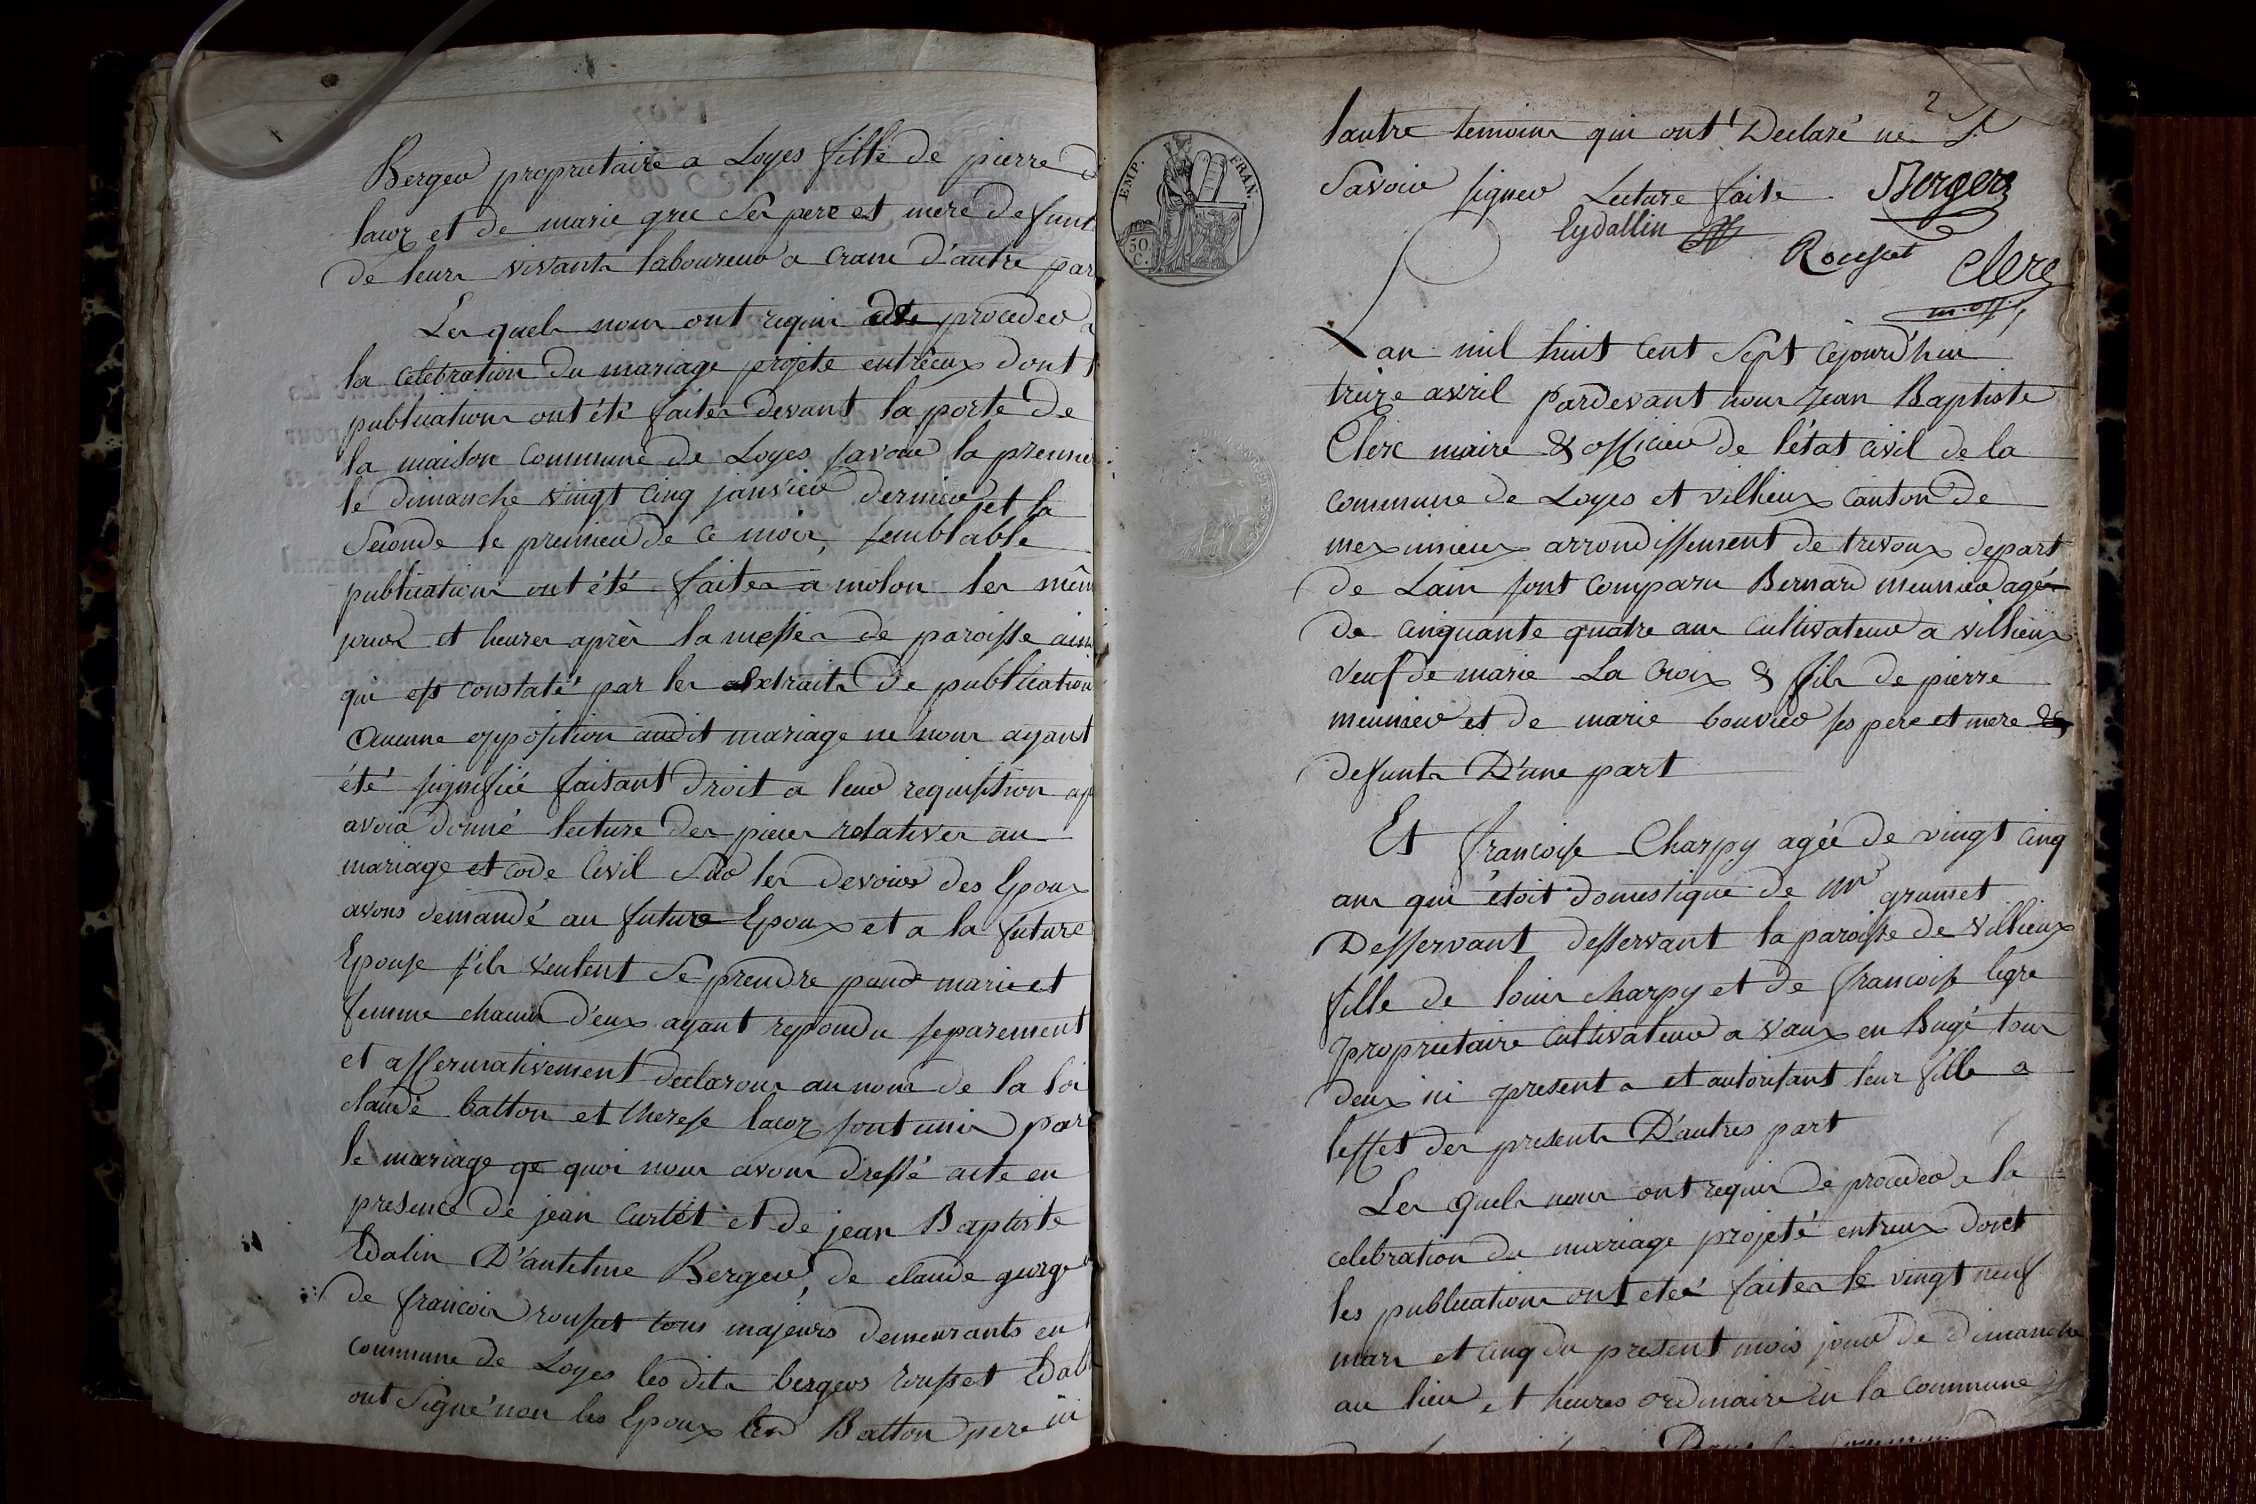 Berger proprietaire a Loyes fille de pierre
lacoz et de marie gree Ses pere et mere defunt
de leurs vivants laboureur a crans d'autre par
Les quels nous ont requis de procéder a
la celebration du mariage projeté entr'eux dont
publications ont été faites devant la porte de
la maison commune de Loyes savoir la premie
le dimanche vingt cinq janvier dernier et la
Seconde le premier de ce mois, semblable
publications ont été faites a molon les mêm
jours et heures après la messes de paroisse ains
qu'il est constaté par les extraits de publication
aucune opposition audit mariage ne nous ayant
été signifiée faisant droit a leur requisition ap
avoir donné lecture des pieces relatives au
mariage et code civil Sur les devoirs des Epoux
avons demandé au future Epoux et a la future
Epouse s'ils veulent Se prendre pour marie et
femme chacun d'eux ayant repondu separement
et affermativement declarons au nom de la loi
claude batton et therese lacoz sont unis par
le mariage de quoi nous avons dressé acte en
presence de jean Curtet et de jean Baptiste
Edalin D'antelme Berger, de claude george
de francois rousset tous majeurs demeurants en
commune de Loyes les dits bergers rousset Edal
ont Signé non les Epoux Batton pere ni
2
lautre temoins qui ont Declaré ne
Savoir signer Lecture faite
Berger
Eydallin
Rousset
Clerc
EMP. FRAN.
50 C.
Lan mil huit cent Sept cejourd'hui
treize avril pardevant nous Jean Baptiste
Clerc maire & officier de l'état civil de la
commune de Loyes et villieux canton de
meximieux arrondissement de trevoux depart
de Lain sont comparu Bernard meunier agée
de cinquante quatre ans cultivateur a villieux
veuf de marie La Croix & fils de pierre
meunier et de marie bouvier ses pere et mere
defunts D'une part
Et francoise Charpy agée de vingt cinq
ans qui étoit domestique de Mr grumet
Desservant desservant la paroisse de villieux
fille de louis charpy et de francoise legre
proprietaire cultivateur a vaux en Bugé tous
deux ici presents et autorisant leur fille a
leffet des presents D'autres part
Les Quels nous ont requis de procéder a la
celebration du mariage projeté entreux dont
les publications ont eté faites le vingt neuf
mars et cinq du present mois jour de dimanche
au lieu et heures ordinaire en la commune